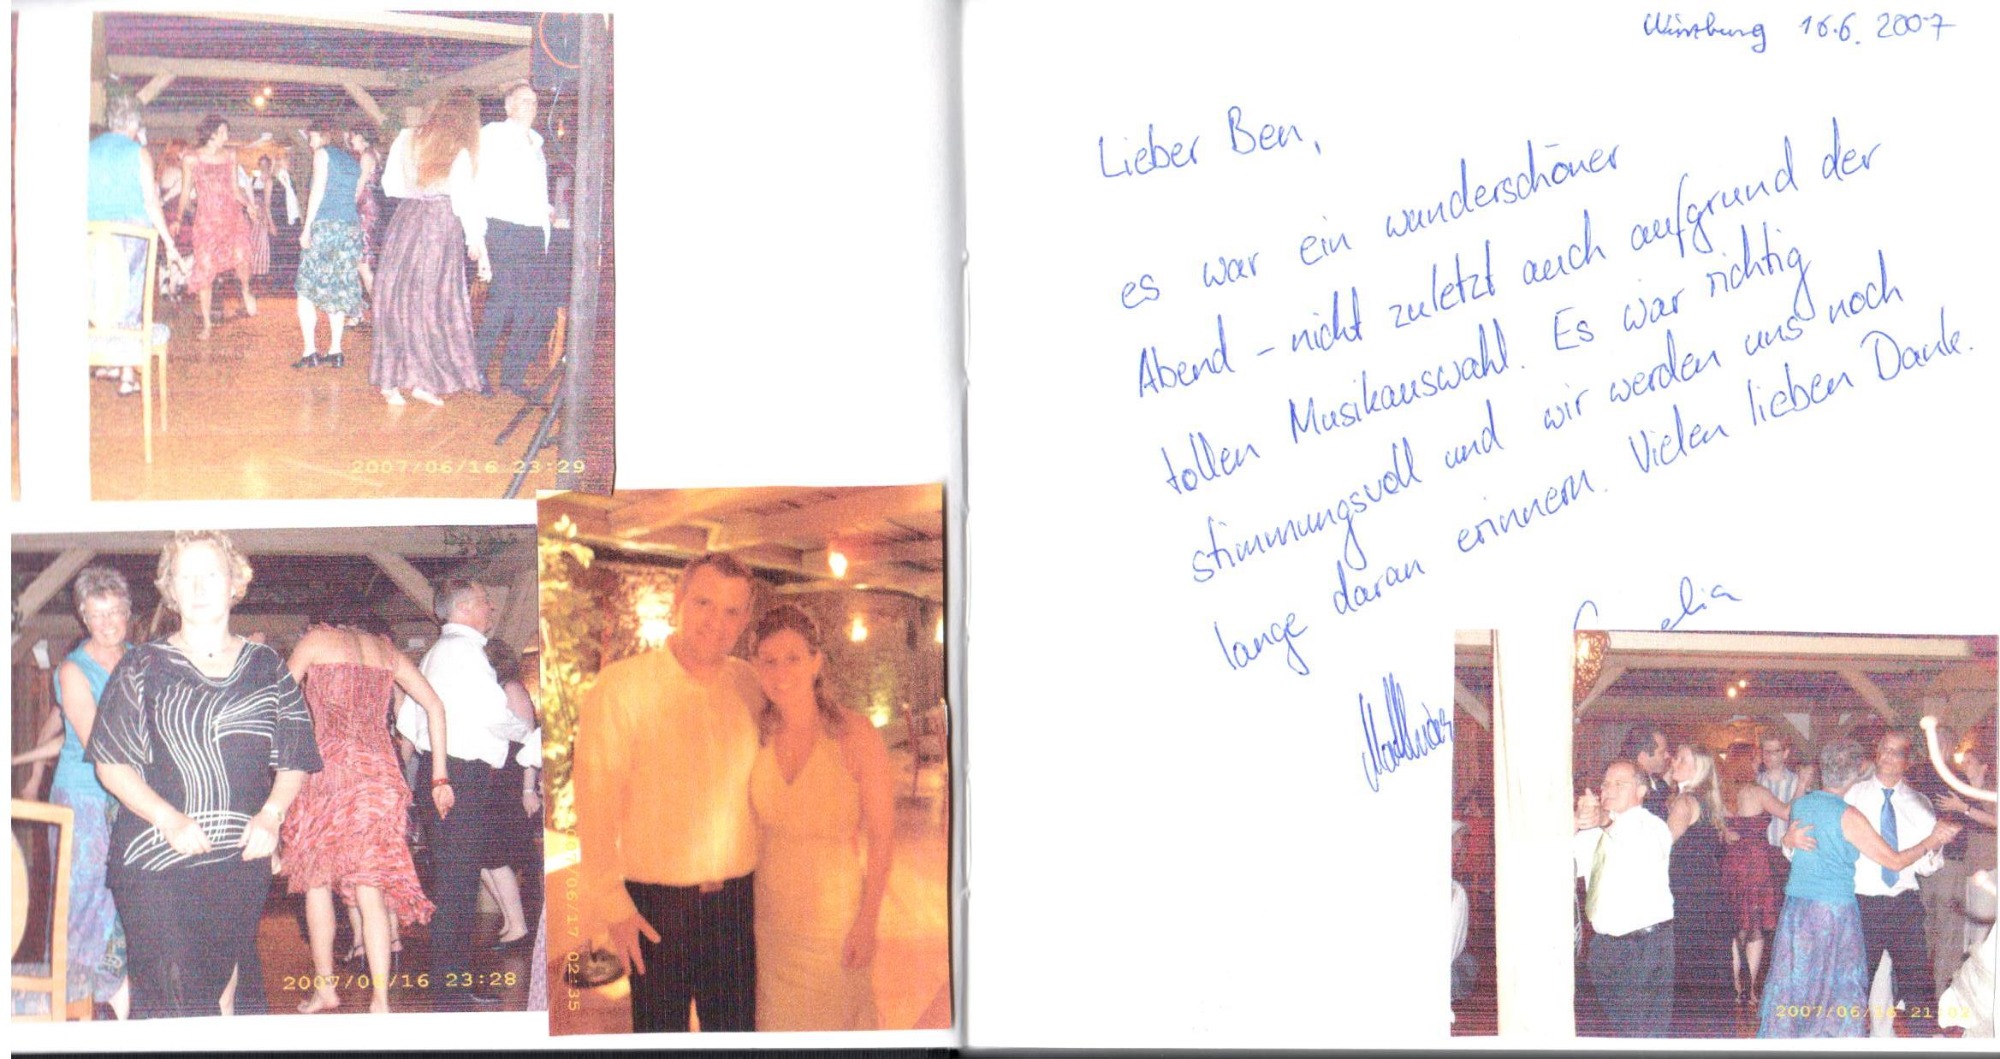 2007/06/16 23:29
2007/06/16 23:28
2007/06/17 02:35
Würzburg 16.6.2007
Lieber Ben,
es war ein wunderschöner
Abend – nicht zuletzt auch aufgrund der
tollen Musikauswahl. Es war richtig
stimmungsvoll und wir werden uns noch
lange daran erinnern. Vielen lieben Dank.
2007/06/16 21: